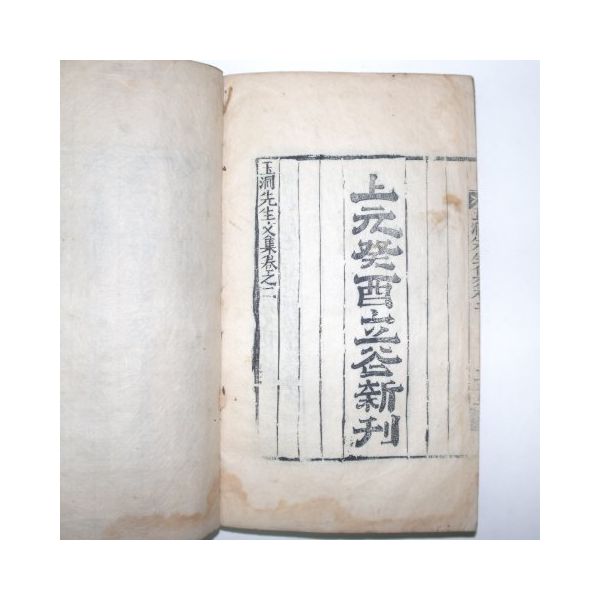 上元癸酉立谷新刊
玉洞先生文集卷之二